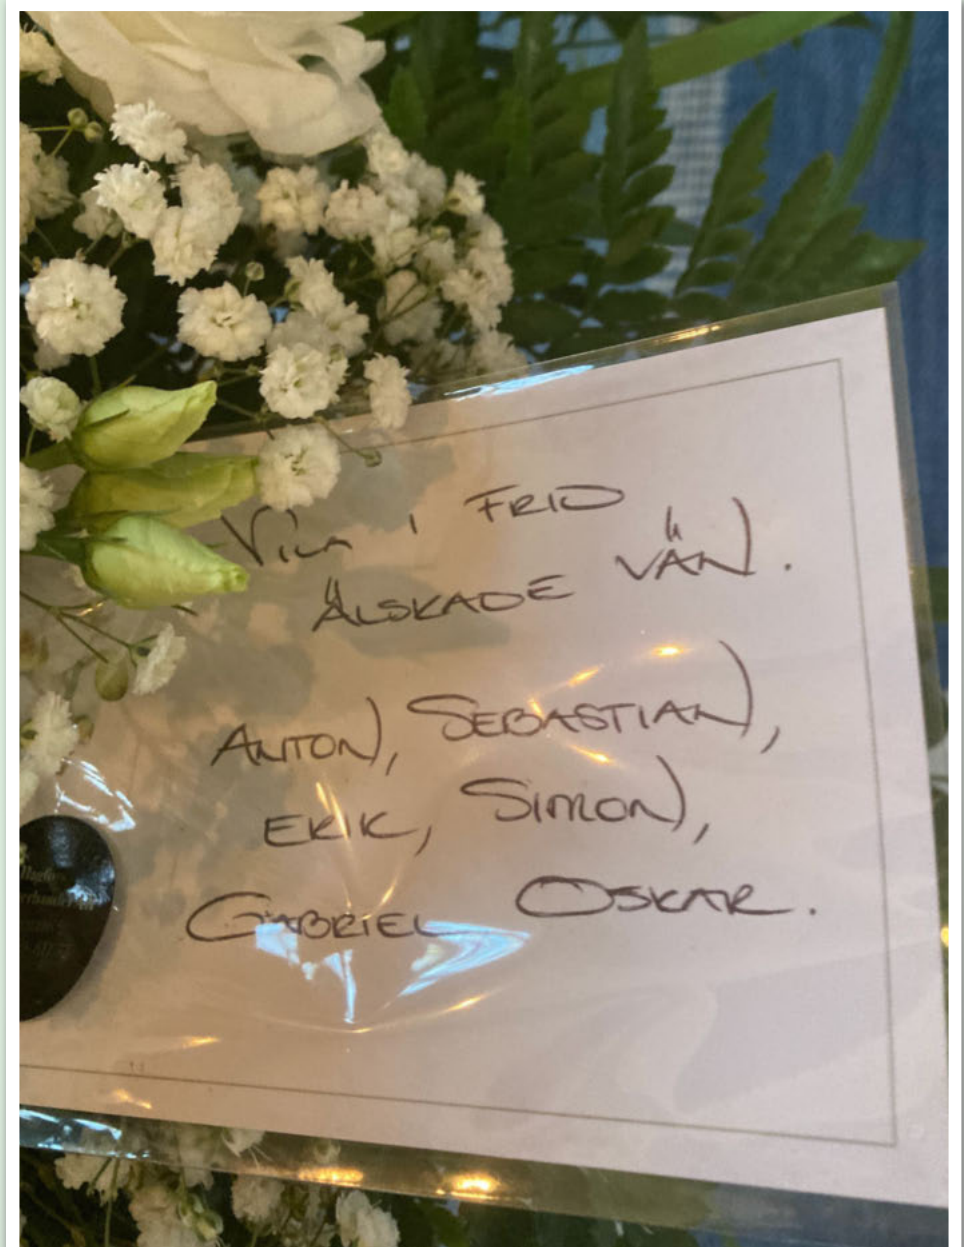 Vila i FRID
ÄLSKADE VÄN.
ANTON, SEBASTIAN,
ERIK, SIMON,
GABRIEL OSKAR.